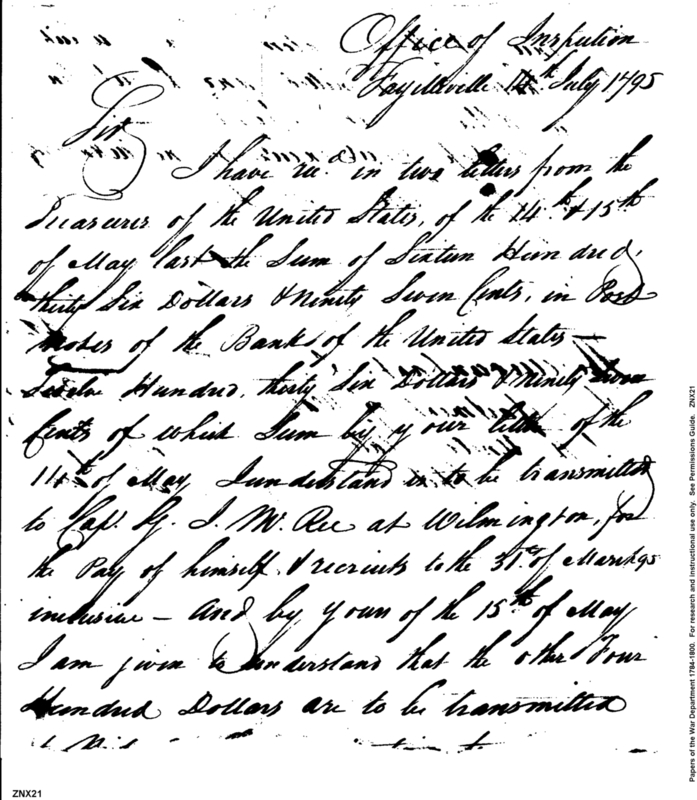 Office of Inspection
Fayetteville 14th July 1795
Sir
I have recd. in two letters from the
Treasurer of the United States, of the 14th & 15th
of May last the Sum of Sixteen Hundred,
thirty Six Dollars & Ninety Seven Cents, in Post
Notes of the Bank of the United States —
Twelve Hundred, thirty Six Dollars & Ninety Seven
Cents of which Sum by your letter of the
14th of May I understand is to be transmitted
to Capt. G. J. McRee at Wilmington, for
the Pay of himself & recruits to the 31st of March 95
inclusive — And by yours of the 15th of May
I am given to understand that the other Four
Hundred Dollars are to be transmitted
Papers of the War Department 1784-1800. For research and instructional use only. See Permissions Guide. ZNX21
ZNX21